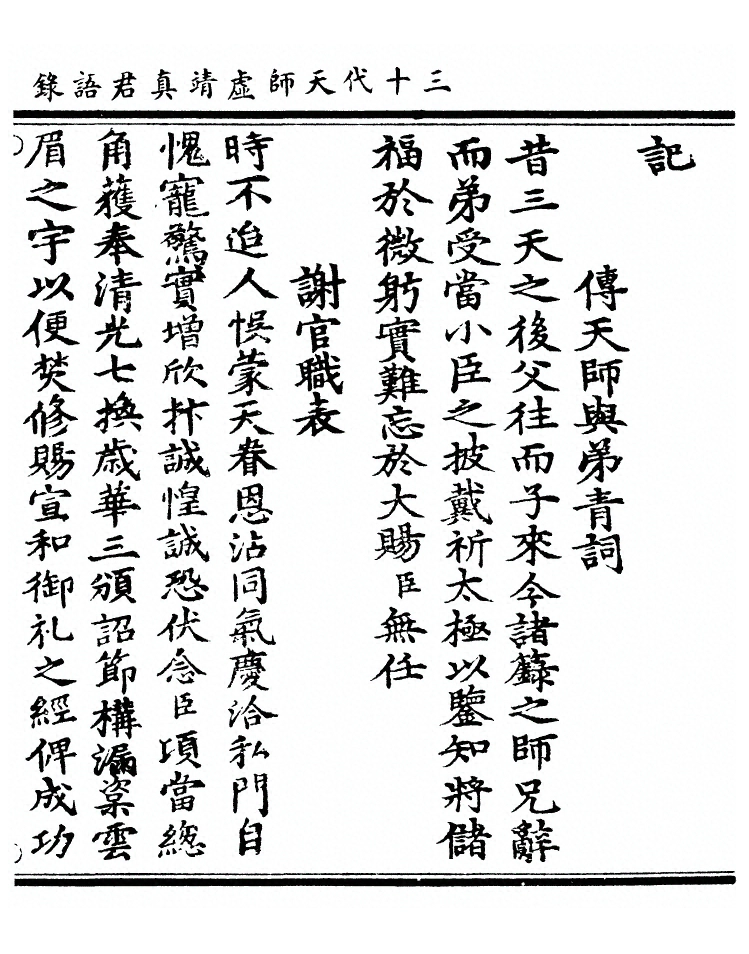 三十代天師虛靖真君語錄
記
傳天師與弟青詞
昔三天之後父往而子來今諸籙之師兄辭
而弟受當小臣之披戴祈太極以鑒知將儲
福於微躬實難忘於大賜臣無任
謝官職表
時不迨人悞蒙天眷恩沾同氣慶洽私門自
愧寵驚實增欣抃誠惶誠恐伏念臣項當總
角獲奉清光七換歲華三頒詔節構漏粢雲
眉之宇以便焚修賜宣和御礼之經俾成功